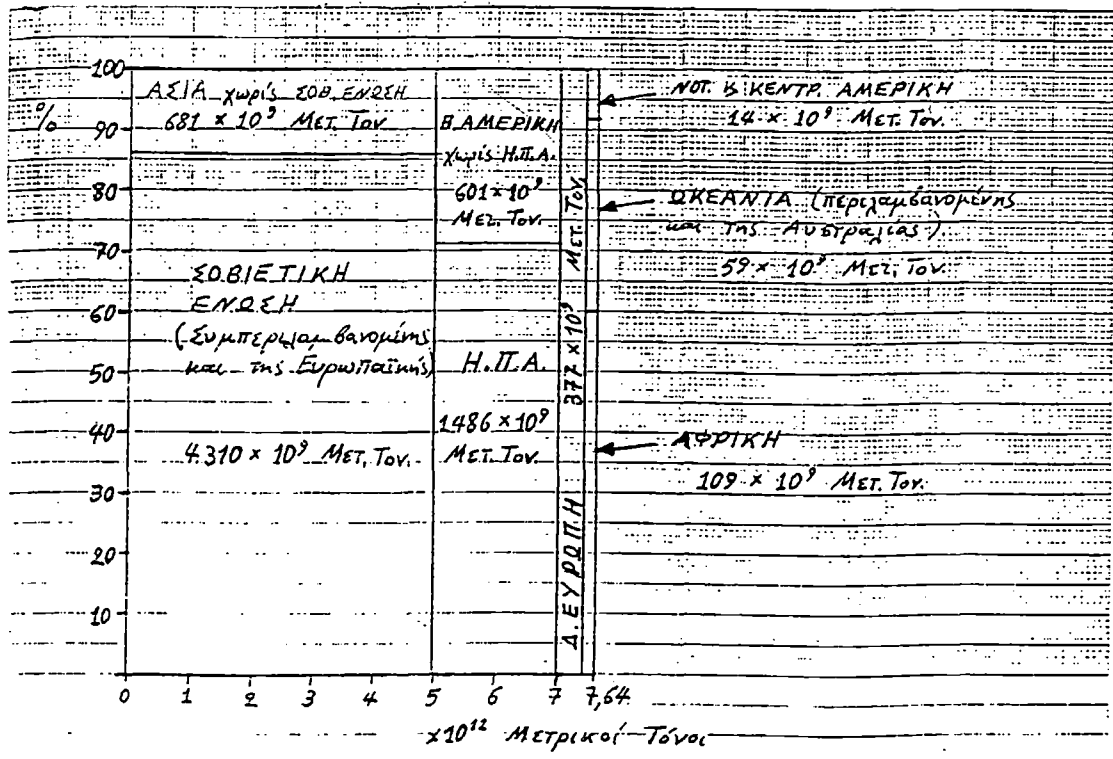 100
%
90
80
70
60
50
40
30
20
10
ΑΣΙΑ χωρίς ΣΟΒ. ΕΝΩΣΗ
681 × 10⁹ Μετ. Τον.
ΣΟΒΙΕΤΙΚΗ
ΕΝΩΣΗ
(Συμπεριλαμβανομένης
και της Ευρωπαϊκής)
4.310 × 10⁹ Μετ. Τον.
Β. ΑΜΕΡΙΚΗ
χωρίς Η.Π.Α.
601 × 10⁹
Μετ. Τον.
Η.Π.Α.
1486 × 10⁹
Μετ. Τον.
Δ. ΕΥΡΩΠΗ 377 × 10⁹ Μετ. Τον.
ΝΟΤ. & ΚΕΝΤΡ. ΑΜΕΡΙΚΗ
14 × 10⁹ Μετ. Τον.
ΩΚΕΑΝΙΑ (περιλαμβανομένης
και της Αυστραλίας)
59 × 10⁹ Μετ. Τον.
ΑΦΡΙΚΗ
109 × 10⁹ Μετ. Τον.
0 1 2 3 4 5 6 7 7,64
×10¹² Μετρικοί Τόνοι